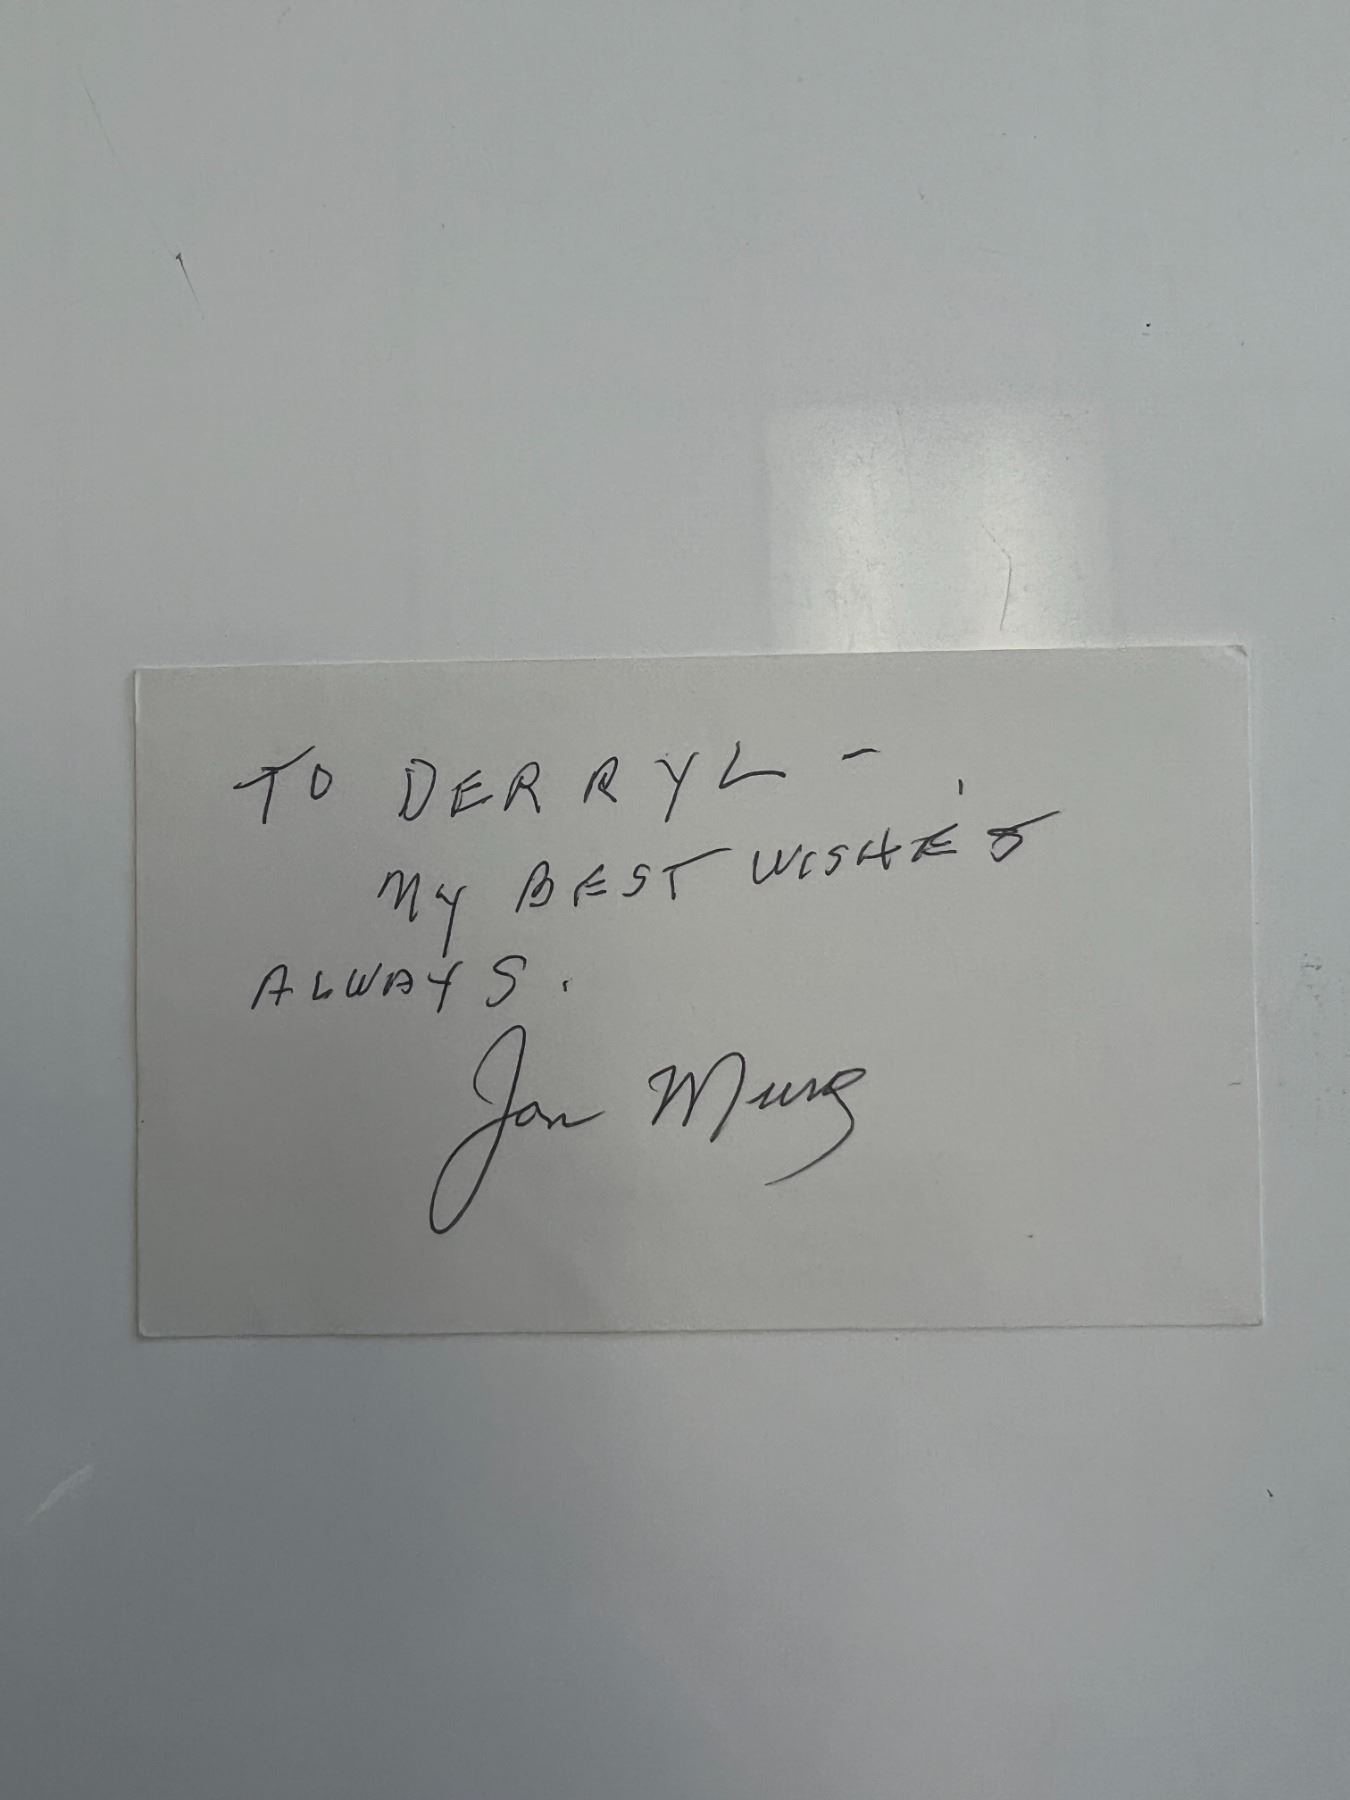 TO DERRYL -
MY BEST WISHES
ALWAYS.
Jan Murray